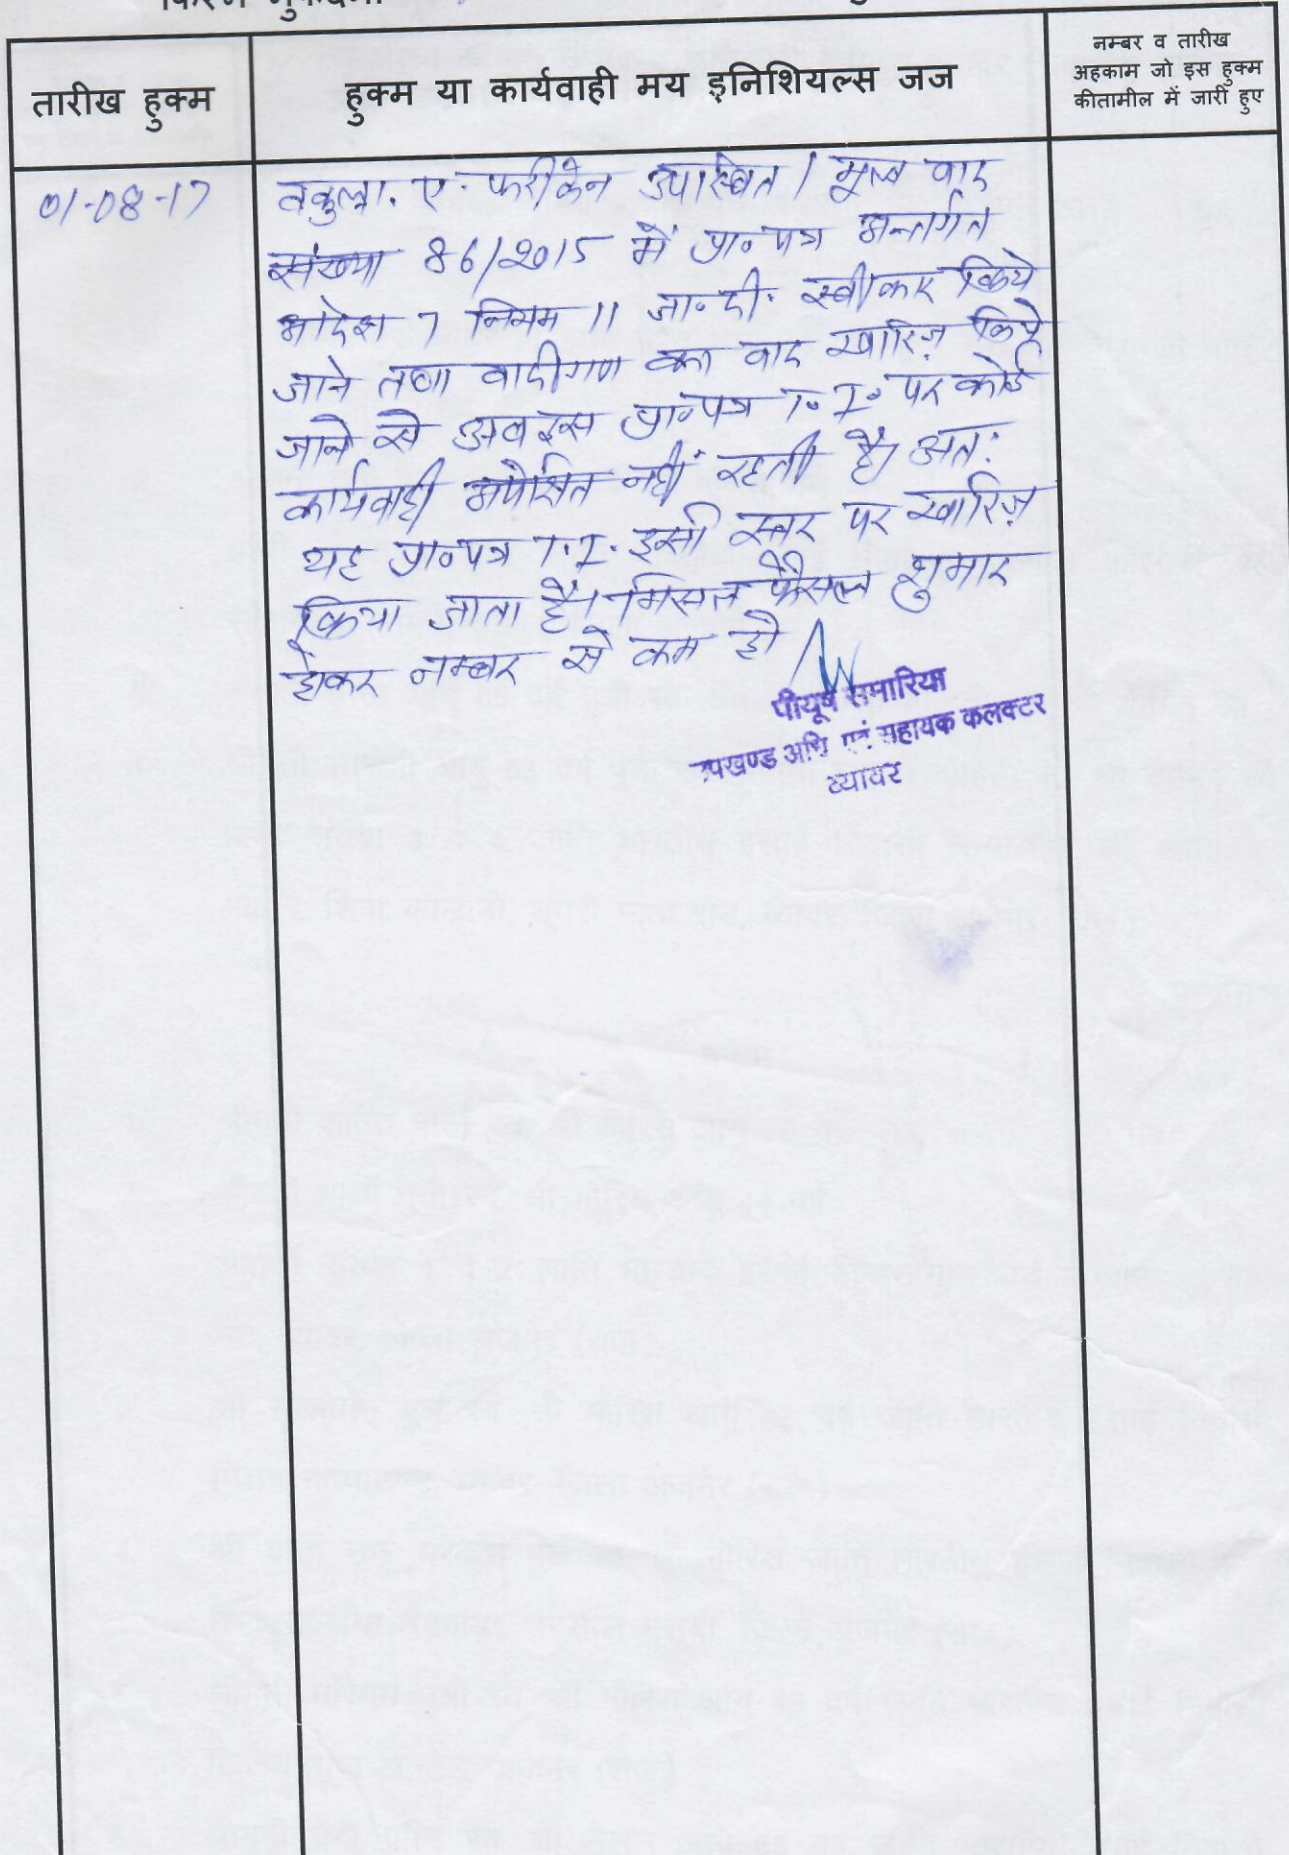 किस्म मुकदमा
तारीख हुक्म
हुक्म या कार्यवाही मय इनिशियल्स जज
नम्बर व तारीख
अहकाम जो इस हुक्म
कीतामील में जारी हुए
01-08-17
वकुला. ए. फरीकेन उपस्थित। मूल वाद
संख्या 86/2015 में प्रा०पत्र अन्तर्गत
आदेश 7 नियम 11 जा०दी. स्वीकार किये
जाने तथा वादीगण का वाद खारिज़ किये
जाने से अब इस प्रा०पत्र T.I. पर कोई
कार्यवाही अपेक्षित नहीं रहती है। अत:
यह प्रा०पत्र T.I. इसी स्तर पर खारिज़
किया जाता है। मिसल फैसल शुमार
होकर नम्बर से कम हो
पीयूष समारिया
उपखण्ड अधि एवं सहायक कलक्टर
ब्यावर